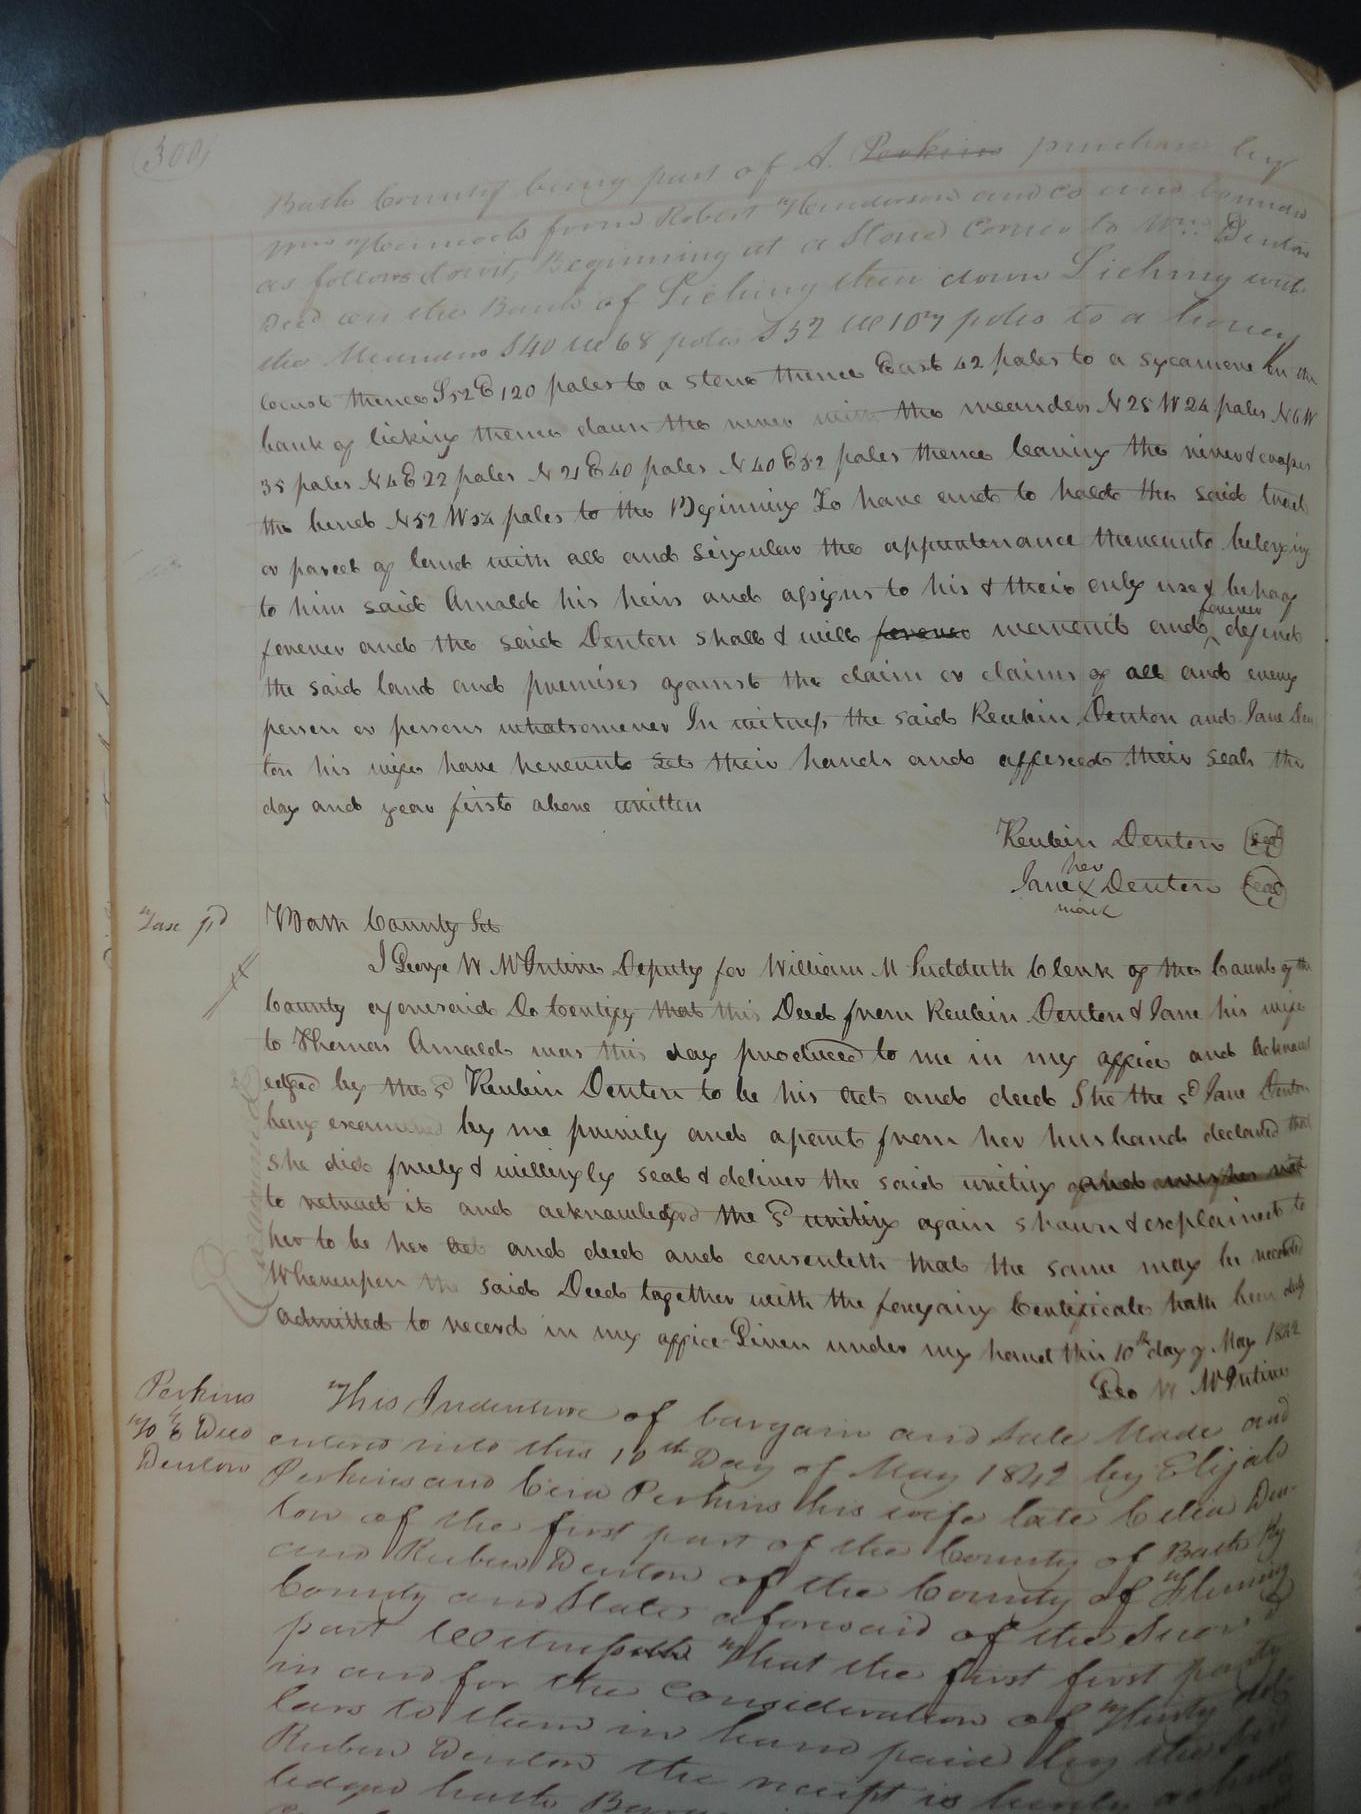 300
Bath County being part of A. Perkins purchase by
Wm Hancock from Robert Henderson and co and bounded
as follows towit, Beginning at a Stone Corner to Wm Denton
Deed on the Bank of Licking then down Licking with
the Meanders S40 W 68 poles S52 W 107 poles to a honey
locust thence S52 E 120 poles to a stone thence East 42 poles to a sycamore on the
bank of licking thence down the river with the meanders N 25 W 24 poles N 6 W
35 poles N 4 E 22 poles N 21 E 40 poles N 40 E 52 poles thence leaving the river &
the bend N 52 W 54 poles to the Beginning To have and to hold the said tract
or parcel of land with all and singular the appurtenance thereunto belonging
to him said Arnold his heirs and assigns to his & their only use & behoof
forever and the said Denton shall & will forever warrant and forever defend
the said land and premises against the claim or claims of all and every
person or persons whatsomever In witness the said Reubin Denton and Jane Den
ton his wife have hereunto set their hands and affixed their seals the
day and year first above written
Reubin Denton (seal)
her
Jane X Denton (seal)
mark
Tax pd
Bath County Sct
I George W McIntire Deputy for William M Sudduth Clerk of the Court of the
County aforesaid Do Certify that this Deed from Reubin Denton & Jane his wife
to Thomas Arnold was this day produced to me in my office and acknowl
edged by the sd Reubin Denton to be his act and deed She the sd Jane Denton
being examined by me privily and apart from her husband declared that
she did freely & willingly seal & deliver the said writing and wishes not
to retract it and acknowledged the sd writing again shown & explained to
her to be her act and deed and consenteth that the same may be recorded
Whereupon the said Deed together with the foregoing Certificate hath been duly
admitted to record in my office Given under my hand this 10th day of May 1842
Geo W McIntire
Perkins
To } Deed
Denton
This Indenture of bargain and Sale Made and
entered into this 10th Day of May 1842 by Elijah
Perkins and Celia Perkins his wife late Celia Den
ton of the first part of the County of Bath Ky
and Reuben Denton of the County of Fleming
County and State aforesaid of the Second
part Witnesseth That the first first party
in and for the Consideration of Thirty dol
lars to them in hand paid by the said
Reuben Denton the receipt is hereby acknow
ledged hath